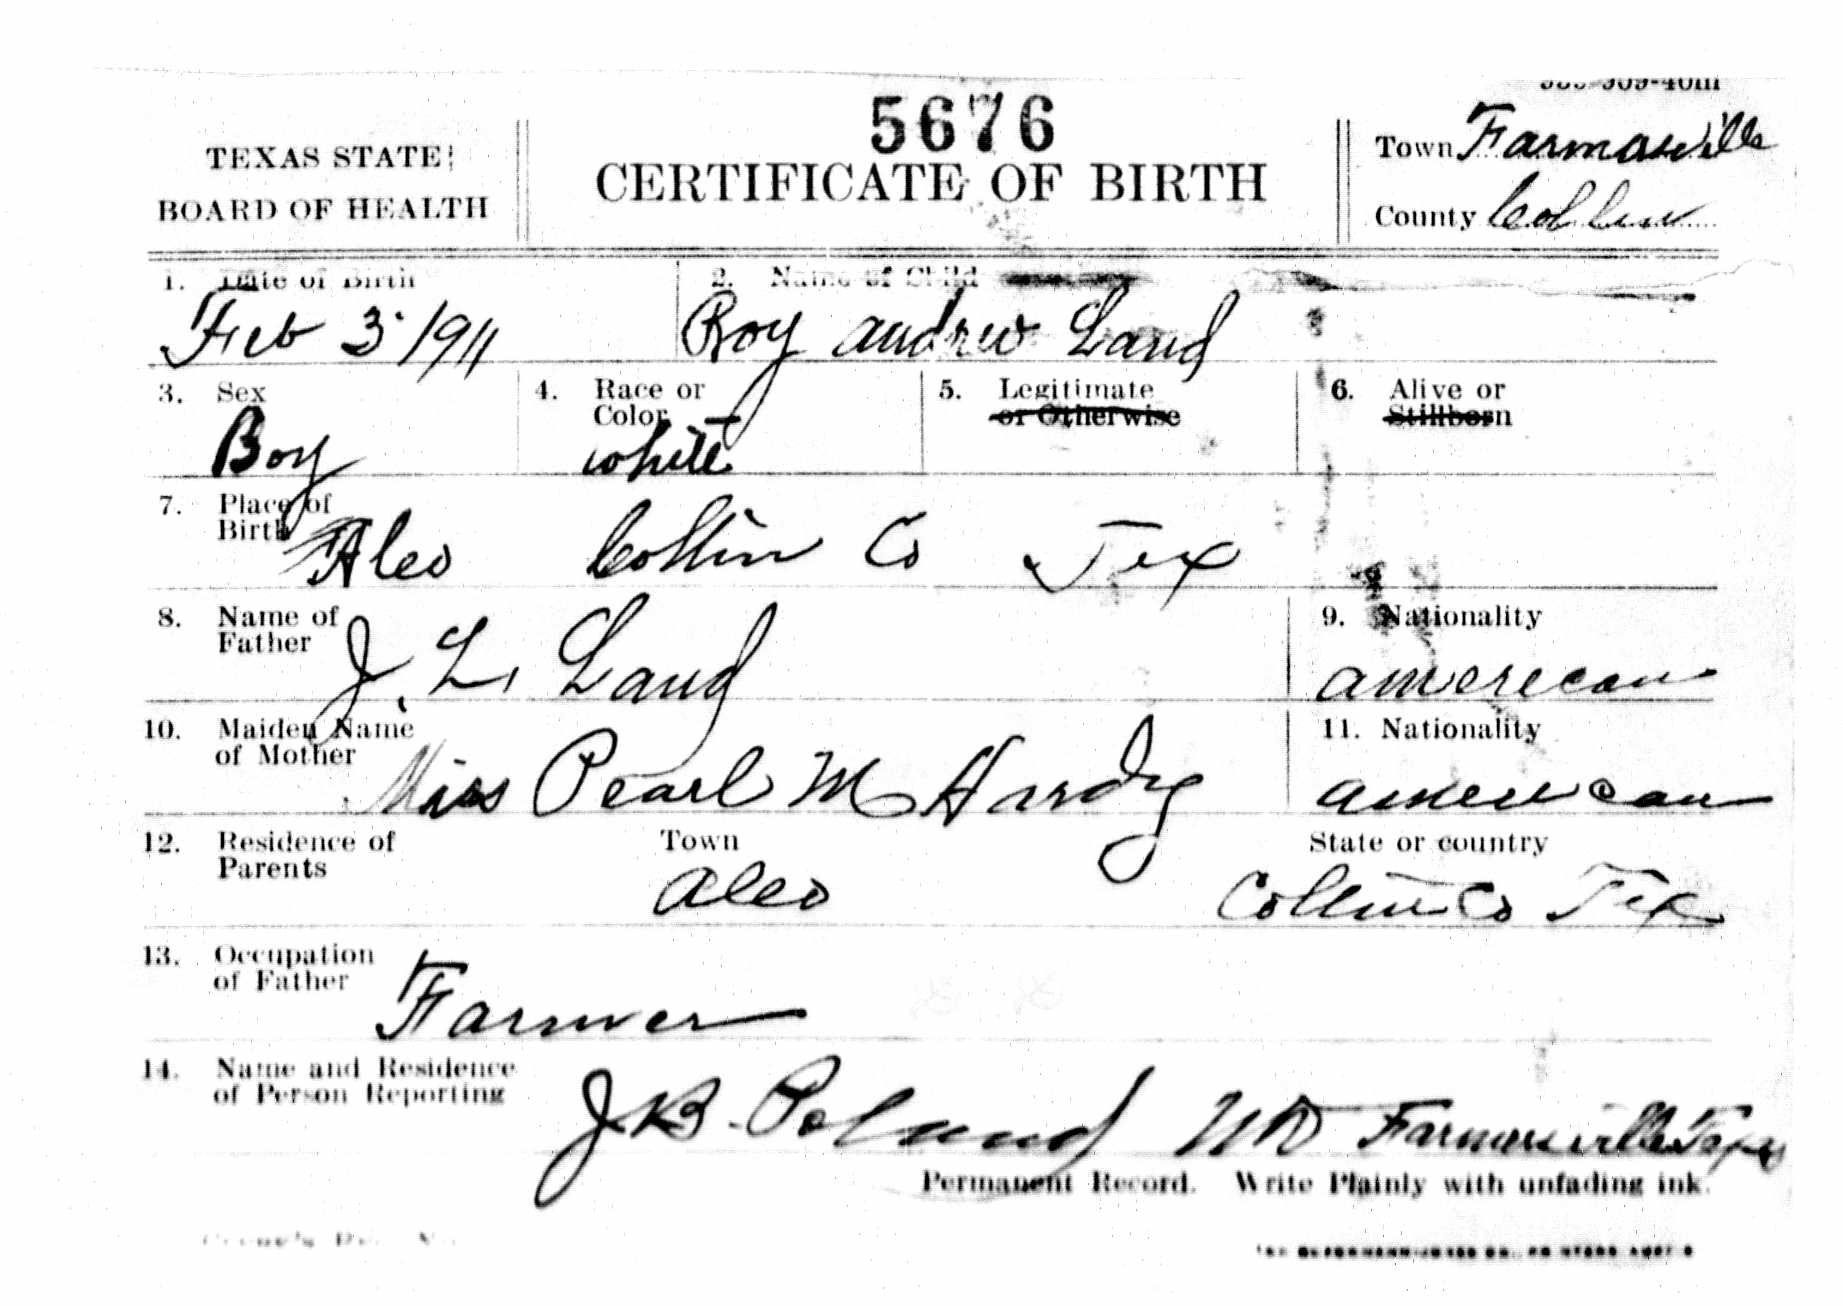 5676
TEXAS STATE
BOARD OF HEALTH
CERTIFICATE OF BIRTH
Town Farmersville
County Collin
1. Date of Birth
Feb 3 1911
2. Name of Child
Roy Andrew Land
3. Sex
Boy
4. Race or
Color
white
5. Legitimate
or Otherwise
6. Alive or
Stillborn
7. Place of
Birth
Aleo Collin Co Tex
8. Name of
Father
J. L. Land
9. Nationality
amerecan
10. Maiden Name
of Mother
Miss Pearl M Hardy
11. Nationality
american
12. Residence of
Parents
Town
Aleo
State or country
Collin Co Tex
13. Occupation
of Father
Farmer
14. Name and Residence
of Person Reporting
J B. Poland MD Farmersville Texas
Permanent Record. Write Plainly with unfading ink.